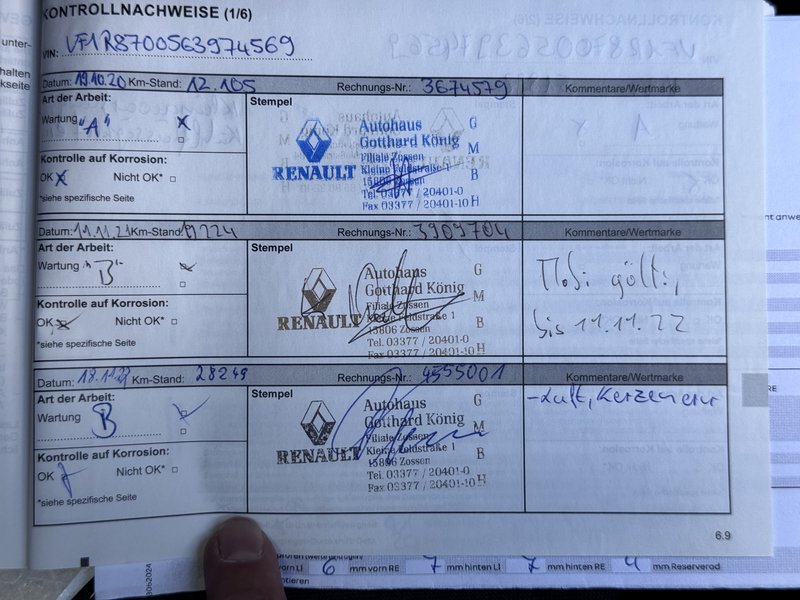 KONTROLLNACHWEISE (1/6)
VIN: VF1R8700563974569
Datum: 19.10.20 Km-Stand: 12.105 Rechnungs-Nr.: 3674579 Kommentare/Wertmarke
Art der Arbeit:
Wartung "A" x
Kontrolle auf Korrosion:
OK x Nicht OK*
*siehe spezifische Seite
Stempel
RENAULT
Autohaus G
Gotthard König
Filiale Zossen M
Kleine Feldstraße 1
15806 Zossen B
Tel. 03377 / 20401-0
Fax 03377 / 20401-10 H
Datum: 11.11.21 Km-Stand: 19224 Rechnungs-Nr.: 3909704 Kommentare/Wertmarke
Art der Arbeit:
Wartung "B"
Kontrolle auf Korrosion:
OK x Nicht OK*
*siehe spezifische Seite
Stempel
RENAULT
Autohaus G
Gotthard König
Filiale Zossen M
Kleine Feldstraße 1
15806 Zossen B
Tel. 03377 / 20401-0
Fax 03377 / 20401-10 H
Mobi gült.
bis 11.11.22
Datum: 18.11.22 Km-Stand: 28249 Rechnungs-Nr.: 4555001 Kommentare/Wertmarke
Art der Arbeit:
Wartung B
Kontrolle auf Korrosion:
OK Nicht OK*
*siehe spezifische Seite
Stempel
RENAULT
Autohaus G
Gotthard König
Filiale Zossen M
Kleine Feldstraße 1
15806 Zossen B
Tel. 03377 / 20401-0
Fax 03377 / 20401-10 H
-Luft, Kerzen
6.9
6 mm vorn RE 7 mm hinten LI 7 mm hinten RE 4 mm Reserverad